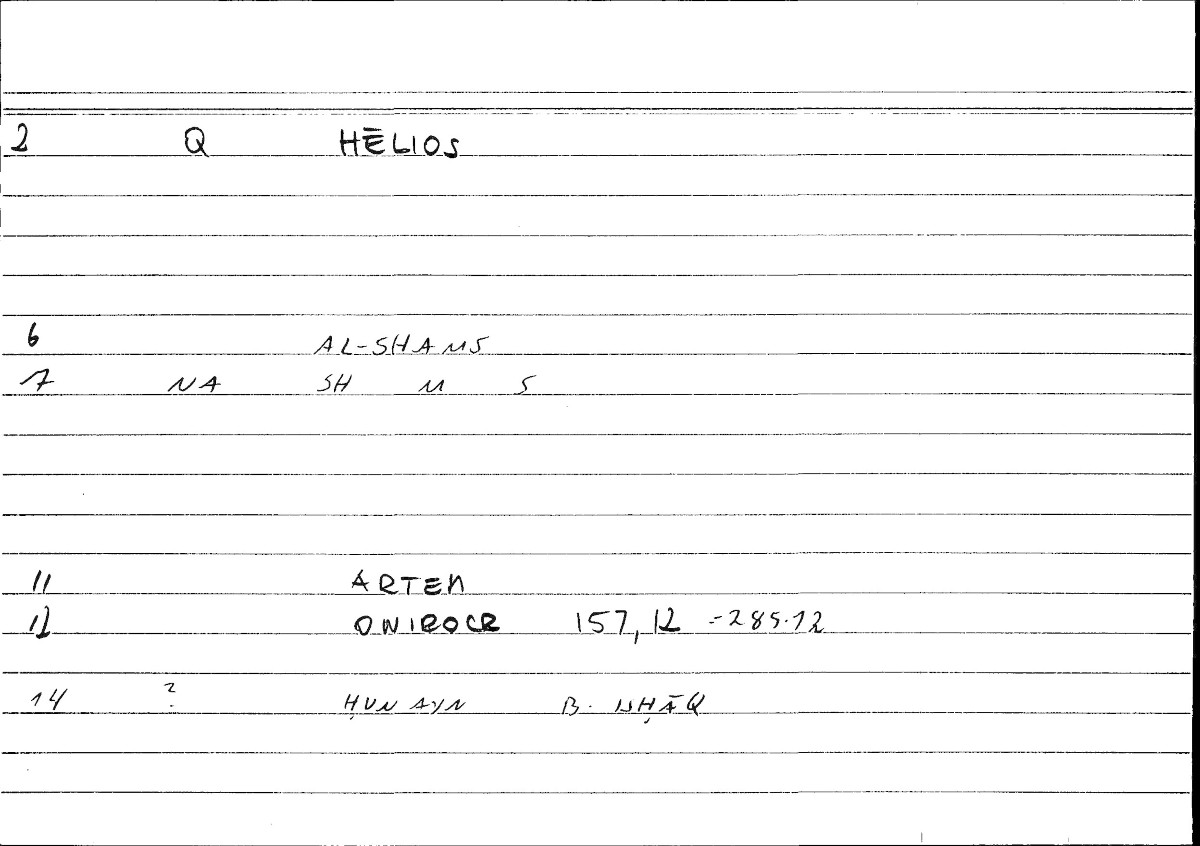 2 Q HĒLIOS
6 AL-SHAMS
7 NA SH M S
11 ARTEM
12 ONIROCR 157,12 = 285.12
14 ? ḤUNAYN B. ISḤĀQ